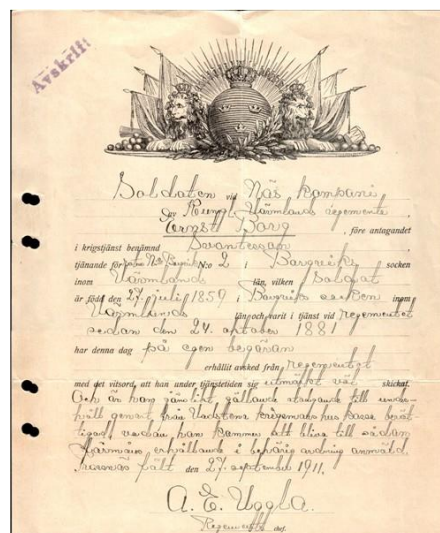 Avskrift
Soldaten vid Näs kompani
av Kungl. Värmlands regemente
Ernst Barg, före antagandet
i krigstjänst benämnd Svantesson
tjänande för No 2 i socken
inom Värmlands län, vilken Soldat
är född den 27 juli 1859 i socken inom
Värmlands län och varit i tjänst vid regementet
sedan den 24 oktober 1881
har denna dag på egen begäran
erhållit avsked från regementet
med det vitsord, att han under tjänstetiden sig utmärkt väl skickat.
Och är han jämlikt gällande stadgande till under-
håll genast från Vadstena krigsmanshus kassa berät-
tigad vadan han kommer att bliva till sådan
förmåns erhållande i behörig ordning anmäld.
fält den 27 september 1911.
A. E. Uggla.
Regements chef.